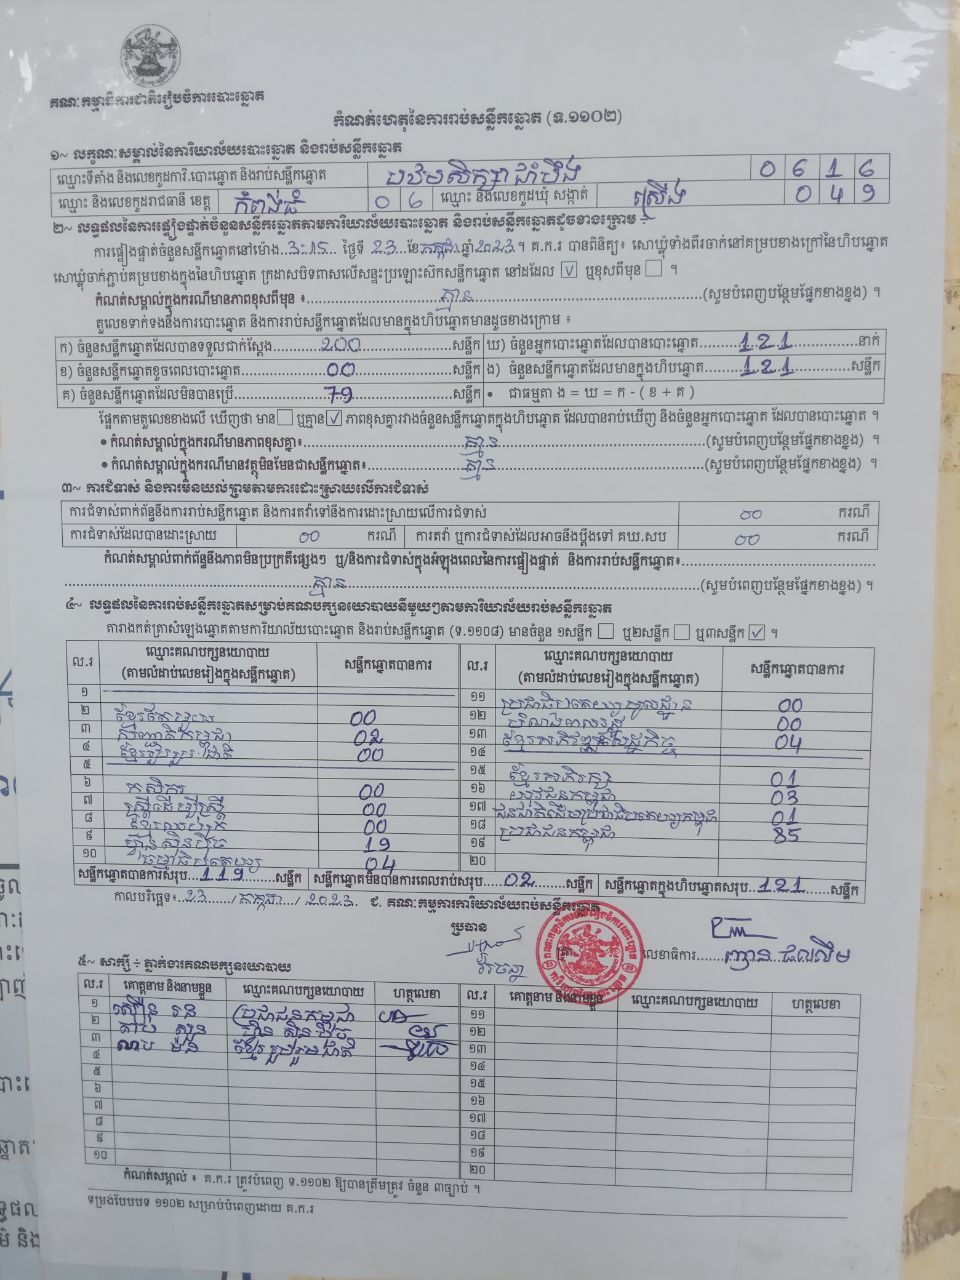 គណៈកម្មាធិការជាតិរៀបចំការបោះឆ្នោត
កំណត់ហេតុនៃការរាប់សន្លឹកឆ្នោត (ទ.១១០២)
១~ លក្ខណៈសម្គាល់នៃការិយាល័យបោះឆ្នោត និងរាប់សន្លឹកឆ្នោត
ឈ្មោះទីតាំង និងលេខកូដការិ.បោះឆ្នោត និងរាប់សន្លឹកឆ្នោត បឋមសិក្សា ជាំបឹង 0 6 1 6
ឈ្មោះ និងលេខកូដរាជធានី ខេត្ត កំពង់ធំ 0 6 ឈ្មោះ និងលេខកូដឃុំ សង្កាត់ ស្រើង 0 4 9
២~ លទ្ធផលនៃការផ្ទៀងផ្ទាត់ចំនួនសន្លឹកឆ្នោតតាមការិយាល័យបោះឆ្នោត និងរាប់សន្លឹកឆ្នោតដូចខាងក្រោម ÷
ការផ្ទៀងផ្ទាត់ចំនួនសន្លឹកឆ្នោតនៅម៉ោង 3:15 ថ្ងៃទី 23 ខែកក្កដា ឆ្នាំ2023។ គ.ក.រ បានពិនិត្យ៖ សោឃ្លុំទាំងពីរចាក់នៅគម្របខាងក្រៅនៃហិបឆ្នោត
សោឃ្លុំចាក់ភ្ជាប់គម្របខាងក្នុងនៃហិបឆ្នោត ក្រដាសបិទពាសលើសន្ទះប្រឡោះសិកសន្លឹកឆ្នោត នៅដដែល ☑ ឬខុសពីមុន ☐ ។
កំណត់សម្គាល់ក្នុងករណីមានភាពខុសពីមុន ៖ គ្មាន (សូមបំពេញបន្ថែមផ្នែកខាងខ្នង) ។
តួលេខទាក់ទងនឹងការបោះឆ្នោត និងការរាប់សន្លឹកឆ្នោតដែលមានក្នុងហិបឆ្នោតមានដូចខាងក្រោម ៖
ក) ចំនួនសន្លឹកឆ្នោតដែលបានទទួលជាក់ស្តែង 200 សន្លឹក ឃ) ចំនួនអ្នកបោះឆ្នោតដែលបានបោះឆ្នោត 121 នាក់
ខ) ចំនួនសន្លឹកឆ្នោតខូចពេលបោះឆ្នោត 00 សន្លឹក ង) ចំនួនសន្លឹកឆ្នោតដែលមានក្នុងហិបឆ្នោត 121 សន្លឹក
គ) ចំនួនសន្លឹកឆ្នោតដែលមិនបានប្រើ 79 សន្លឹក • ជាធម្មតា ង = ឃ = ក - ( ខ + គ )
ផ្អែកតាមតួលេខខាងលើ ឃើញថា មាន ☐ ឬគ្មាន ☑ ភាពខុសគ្នារវាងចំនួនសន្លឹកឆ្នោតក្នុងហិបឆ្នោត ដែលបានរាប់ឃើញ និងចំនួនអ្នកបោះឆ្នោត ដែលបានបោះឆ្នោត ។
• កំណត់សម្គាល់ក្នុងករណីមានភាពខុសគ្នា៖ គ្មាន (សូមបំពេញបន្ថែមផ្នែកខាងខ្នង) ។
• កំណត់សម្គាល់ក្នុងករណីមានវត្ថុមិនមែនជាសន្លឹកឆ្នោត៖ គ្មាន (សូមបំពេញបន្ថែមផ្នែកខាងខ្នង) ។
៣~ ការជំទាស់ និងការមិនយល់ព្រមតាមការដោះស្រាយលើការជំទាស់
ការជំទាស់ពាក់ព័ន្ធនឹងការរាប់សន្លឹកឆ្នោត និងការតវ៉ាទៅនឹងការដោះស្រាយលើការជំទាស់ 00 ករណី
ការជំទាស់ដែលបានដោះស្រាយ 00 ករណី ការតវ៉ា ឬការជំទាស់ដែលអាចនឹងប្តឹងទៅ គឃ.សប 00 ករណី
កំណត់សម្គាល់ពាក់ព័ន្ធនឹងភាពមិនប្រក្រតីផ្សេងៗ ឬ/និងការជំទាស់ក្នុងអំឡុងពេលនៃការផ្ទៀងផ្ទាត់ និងការរាប់សន្លឹកឆ្នោត៖
គ្មាន (សូមបំពេញបន្ថែមផ្នែកខាងខ្នង) ។
៤~ លទ្ធផលនៃការរាប់សន្លឹកឆ្នោតសម្រាប់គណបក្សនយោបាយនីមួយៗតាមការិយាល័យរាប់សន្លឹកឆ្នោត
តារាងកត់ត្រាសំឡេងឆ្នោតតាមការិយាល័យបោះឆ្នោត និងរាប់សន្លឹកឆ្នោត (ទ.១១០៨) មានចំនួន ១សន្លឹក ☐ ឬ២សន្លឹក ☐ ឬ៣សន្លឹក ☑ ។
ល.រ ឈ្មោះគណបក្សនយោបាយ (តាមលំដាប់លេខរៀងក្នុងសន្លឹកឆ្នោត) សន្លឹកឆ្នោតបានការ ល.រ ឈ្មោះគណបក្សនយោបាយ (តាមលំដាប់លេខរៀងក្នុងសន្លឹកឆ្នោត) សន្លឹកឆ្នោតបានការ
១ ១១ ប្រជាធិបតេយ្យមូលដ្ឋាន 00
២ ខ្មែរតែមួយ 00 ១២ 00
៣ សញ្ជាតិកម្ពុជា 02 ១៣ ខ្មែរអភិវឌ្ឍន៍សេដ្ឋកិច្ច 04
៤ ខ្មែររួបរួមជាតិ 00 ១៤
៥ ១៥ ខ្មែរអភិរក្ស 01
៦ កសិករ 00 ១៦ យុវជនកម្ពុជា 03
៧ ស្ត្រីដើម្បីស្ត្រី 00 ១៧ ជនជាតិដើមប្រជាធិបតេយ្យកម្ពុជា 01
៨ 00 ១៨ ប្រជាជនកម្ពុជា 85
៩ ហ៊្វុនស៊ិនប៉ិច 19 ១៩
១០ ធម្មាធិបតេយ្យ 04 ២០
សន្លឹកឆ្នោតបានការសរុប 119 សន្លឹក សន្លឹកឆ្នោតមិនបានការពេលរាប់សរុប 02 សន្លឹក សន្លឹកឆ្នោតក្នុងហិបឆ្នោតសរុប 121 សន្លឹក
កាលបរិច្ឆេទ៖ 23 / កក្កដា / 2023 ជ. គណៈកម្មការការិយាល័យរាប់សន្លឹកឆ្នោត
ប្រធាន
លេខាធិការ
៥~ សាក្សី ÷ ភ្នាក់ងារគណបក្សនយោបាយ
ល.រ គោត្តនាម និងនាមខ្លួន ឈ្មោះគណបក្សនយោបាយ ហត្ថលេខា ល.រ គោត្តនាម និងនាមខ្លួន ឈ្មោះគណបក្សនយោបាយ ហត្ថលេខា
១ ប្រជាជនកម្ពុជា ១១
២ ហ៊្វុនស៊ិនប៉ិច ១២
៣ ខ្មែររួបរួមជាតិ ១៣
៤ ១៤
៥ ១៥
៦ ១៦
៧ ១៧
៨ ១៨
៩ ១៩
១០ ២០
កំណត់សម្គាល់ ៖ គ.ក.រ ត្រូវបំពេញ ទ.១១០២ ឱ្យបានត្រឹមត្រូវ ចំនួន ៣ច្បាប់ ។
ទម្រង់បែបបទ ១១០២ សម្រាប់បំពេញដោយ គ.ក.រ